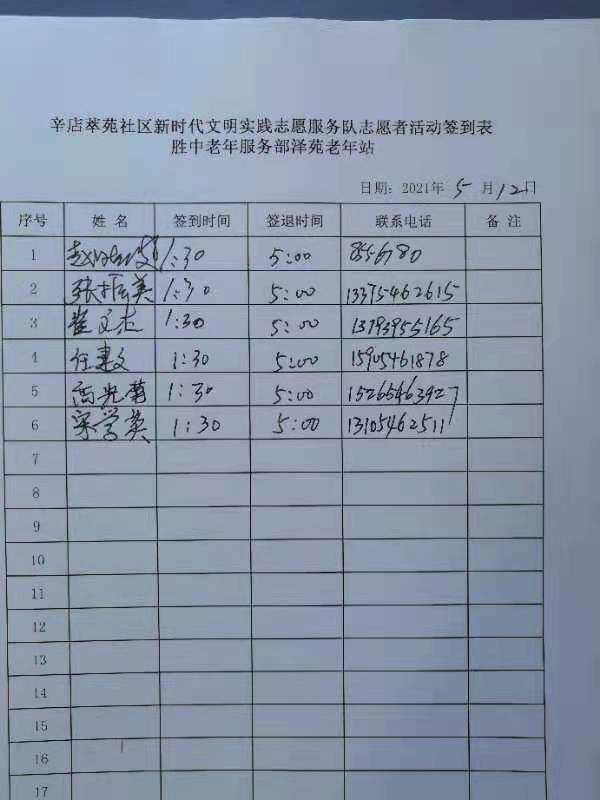 辛店萃苑社区新时代文明实践志愿服务队志愿者活动签到表
胜中老年服务部泽苑老年站
日期：2021年 5 月12日
序号 姓 名 签到时间 签退时间 联系电话 备 注
1 赵 1:30 5:00 8556780
2 张振美 1:30 5:00 13375462615
3 崔文杰 1:30 5:00 13793955165
4 任建文 1:30 5:00 15905461878
5 高光菊 1:30 5:00 15265463427
6 宋学英 1:30 5:00 13105462511
7
8
9
10
11
12
13
14
15
16
17